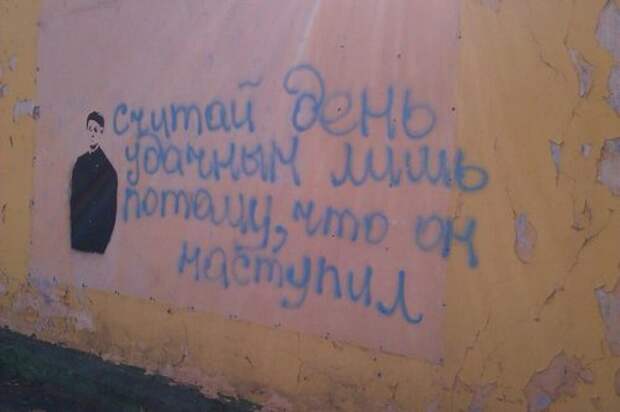 считай день
удачным лишь
потому, что он
наступил